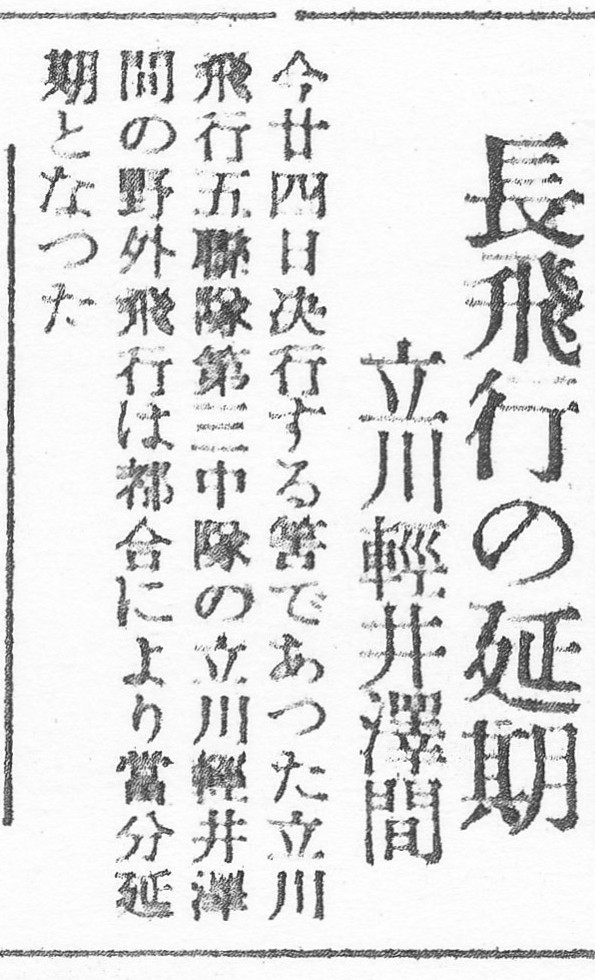 長飛行の延期
立川輕井澤間
今廿四日决行する筈であつた立川
飛行五聯隊第三中隊の立川輕井澤
間の野外飛行は都合により當分延
期となつた